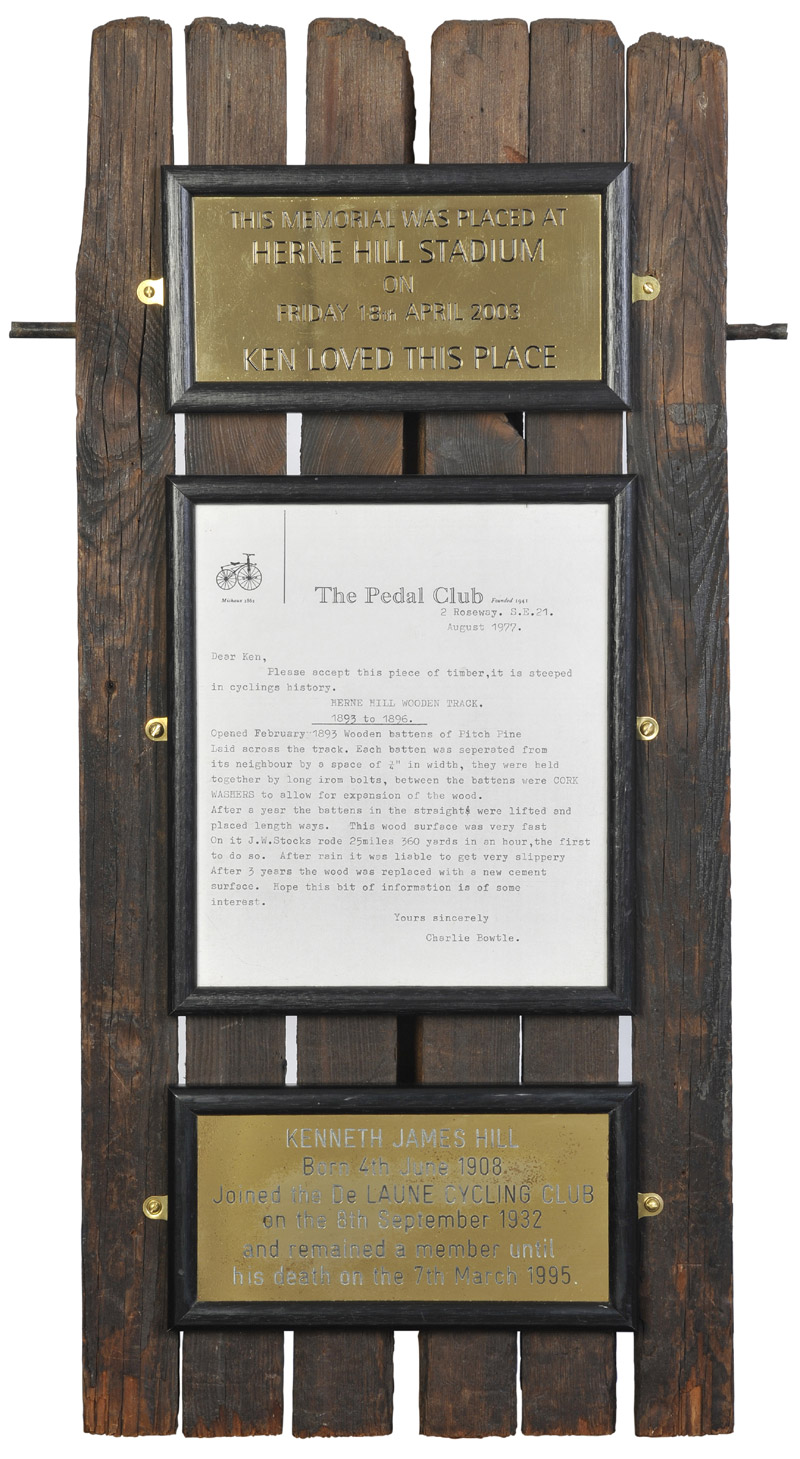 THIS MEMORIAL WAS PLACED AT
HERNE HILL STADIUM
ON
FRIDAY 18th APRIL 2003
KEN LOVED THIS PLACE
Michaux 1861
The Pedal Club Founded 1941
2 Roseway. S.E.21.
August 1977.
Dear Ken,
Please accept this piece of timber,it is steeped
in cyclings history.
HERNE HILL WOODEN TRACK.
1893 to 1896.
Opened February 1893 Wooden battens of Pitch Pine
Laid across the track. Each batten was seperated from
its neighbour by a space of " in width, they were held
together by long irom bolts, between the battens were CORK
WASHERS to allow for expansion of the wood.
After a year the battens in the straights were lifted and
placed length ways. This wood surface was very fast
On it J.W.Stocks rode 25miles 360 yards in an hour,the first
to do so. After rain it was liable to get very slippery
After 3 years the wood was replaced with a new cement
surface. Hope this bit of information is of some
interest.
Yours sincerely
Charlie Bowtle.
KENNETH JAMES HILL
Born 4th June 1908.
Joined the De LAUNE CYCLING CLUB
on the 8th September 1932
and remained a member until
his death on the 7th March 1995.